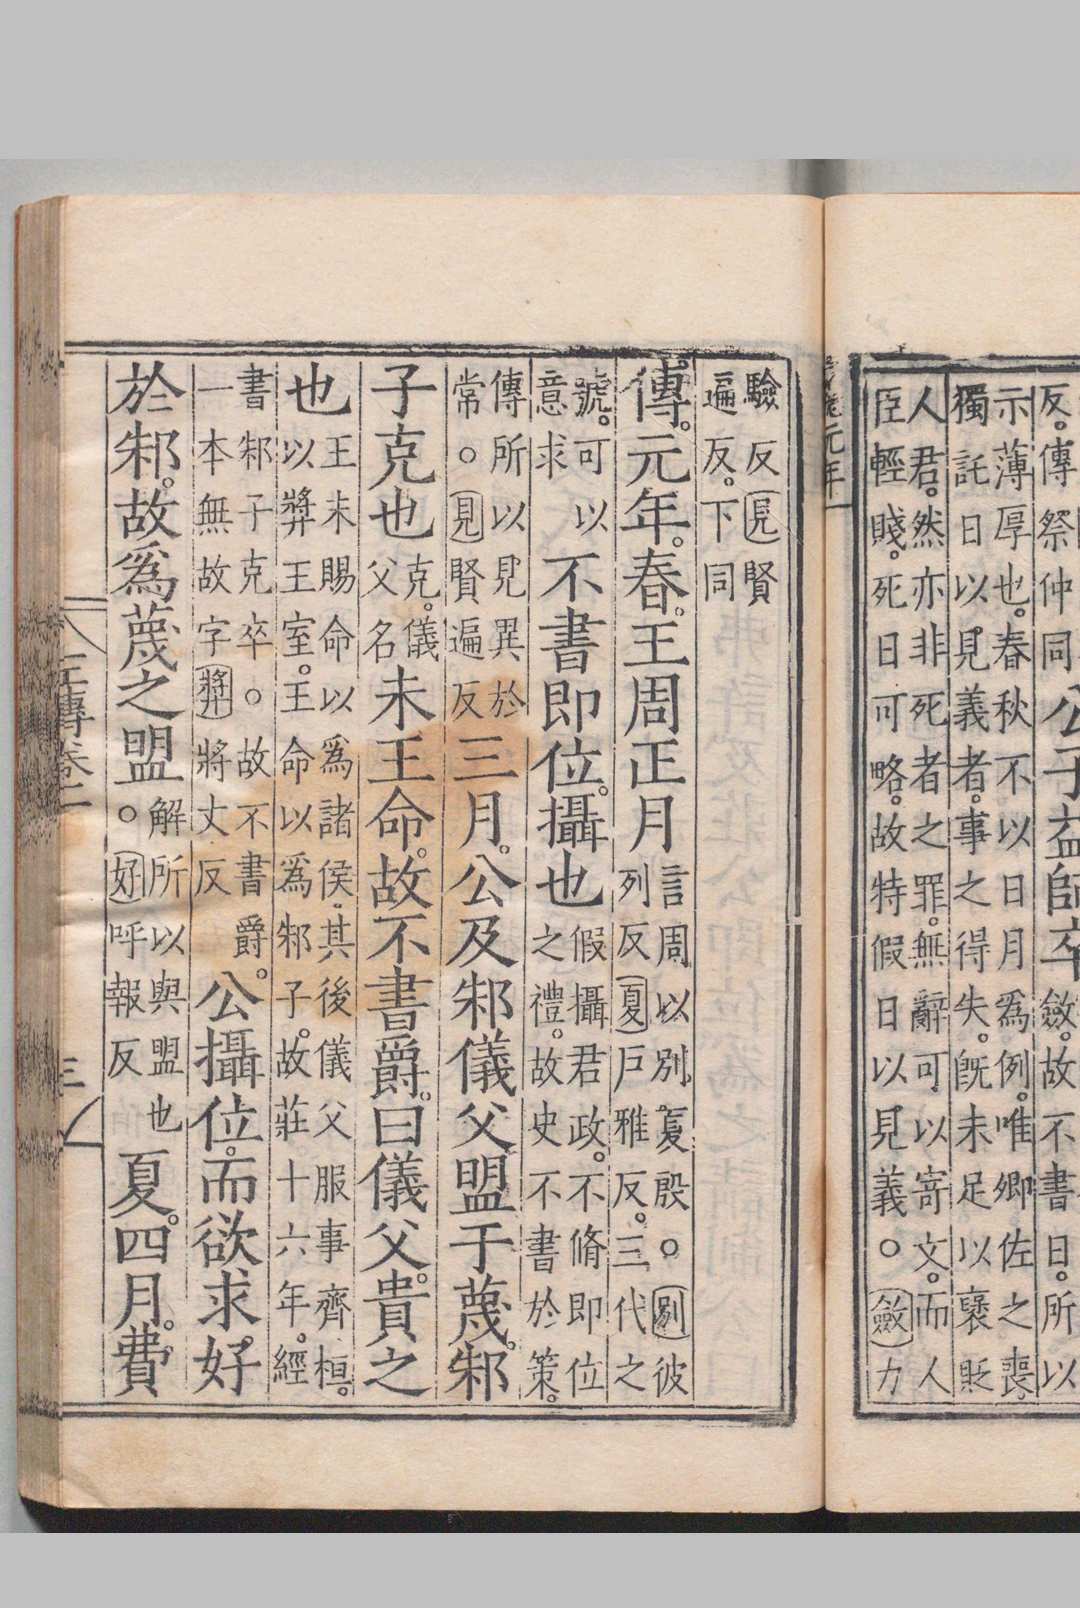 反。傳祭仲同公子益師卒斂。故不書日。所以
示薄厚也。春秋不以日月爲例。唯卿佐之喪。
獨託日以見義者。事之得失。旣未足以褒貶
人君。然亦非死者之罪。無辭可以寄文。而人
臣輕賤。死日可略。故特假日以見義。○斂力
元年
驗反見賢
遍反。下同
傳。元年。春。王周正月言周以別夏殷。○別彼列反夏戶雅反。三代之
號。可以意求不書即位。攝也假攝君政。不脩即位之禮。故史不書於策。
傳所以見異於常。○見賢遍反三月。公及邾儀父盟于蔑。邾
子克也克。儀父名未王命。故不書爵。曰儀父。貴之
也王未賜命以爲諸侯。其後儀父服事齊桓。以獎王室。王命以爲邾子。故莊十六年。經
書邾子克卒。○故不書爵。一本無故字獎將丈反公攝位。而欲求好
於邾。故爲蔑之盟。解所以與盟也○好呼報反夏。四月。費
左傳卷二
三